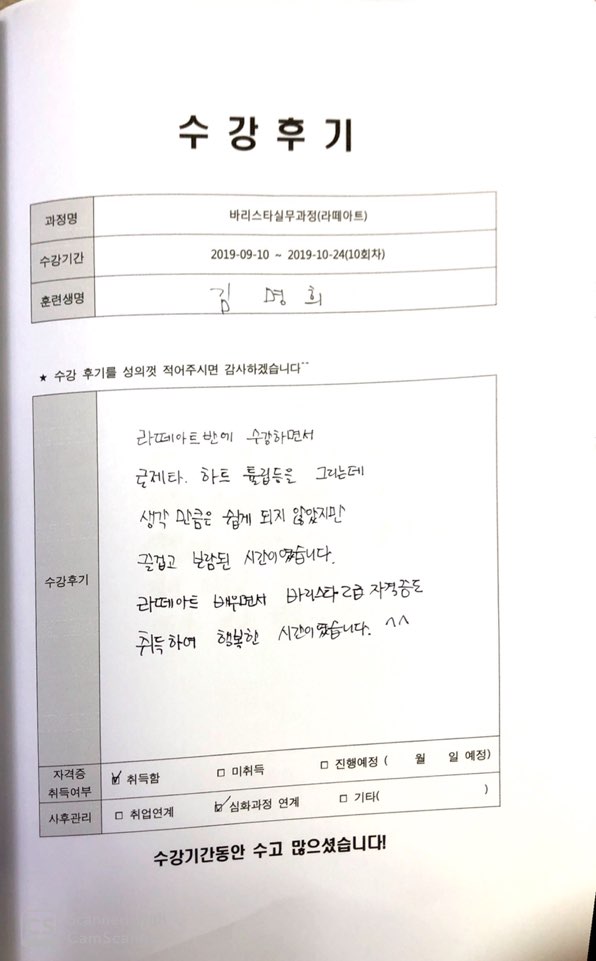 수강후기
과정명 바리스타실무과정(라떼아트)
수강기간 2019-09-10 ~ 2019-10-24(10회차)
훈련생명 김명희
★ 수강 후기를 성의껏 적어주시면 감사하겠습니다^^
라떼아트반에 수강하면서
로제타. 하트 튤립등을 그리는데
생각만큼은 쉽게 되지 않았지만
수강후기 즐겁고 보람된 시간이였습니다.
라떼아트 배우면서 바리스타2급 자격증도
취득하여 행복한 시간이였습니다. ^^
자격증 취득여부 ☑ 취득함 □ 미취득 □ 진행예정 ( 월 일 예정)
사후관리 □ 취업연계 ☑ 심화과정 연계 □ 기타( )
수강기간동안 수고 많으셨습니다!
CS Scanned with
CamScanner